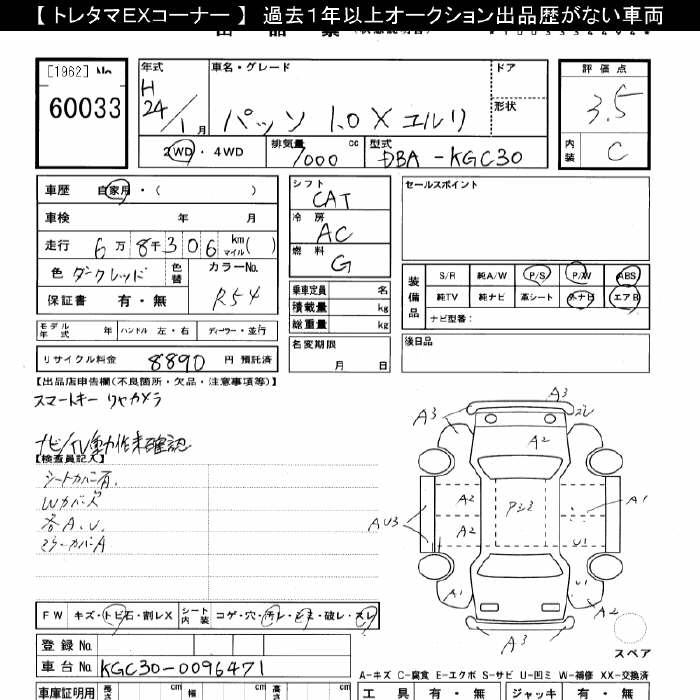 【 トレタマEXコーナー 】 過去1年以上オークション出品歴がない車両
[1962] No.
60033
年式
H
24/1月
車名・グレード
パッソ 1.0 X ユルリ
ドア
形状
評価点
3.5
内装
C
2WD・4WD
排気量
1000 cc
型式
DBA-KGC30
車歴 自家用・( )
車検 年 月
走行 6万8千306 km マイル( )
色 ダークレッド 色替
カラーNo.
R54
保証書 有・無
シフト
CAT
冷房
AC
燃料
G
乗車定員 名
積載量 kg
総重量 kg
名変期限
月 日
セールスポイント
装備品
S/R 純A/W P/S P/W ABS
純TV 純ナビ 革シート 外ナビ エアB
ナビ型番:
後日品
モデル年式 年 ハンドル 左・右 ディーラー・並行
リサイクル料金 8890 円 預託済
【出品店申告欄(不良箇所・欠品・注意事項等)】
スマートキー リヤカメラ
ナビ/TV動作未確認
【検査員記入】
シートカバー有.
Wカバーズ
各A.U.
ミラーカバーA
A3 A3
A2
A2 Pシミ A1
AU3 A2
U1
A1 U1 A2
A3
スペア
FW キズ・トビ石・割レX シート内装 コゲ・穴・汚レ・シミ・破レ・スレ
登録No.
車台No. KGC30-0096471
A-キズ C-腐食 E-エクボ S-サビ U-凹ミ W-補修 XX-交換済
車庫証明用 長さ cm 幅 cm 高さ cm
工具 有・無 ジャッキ 有・無